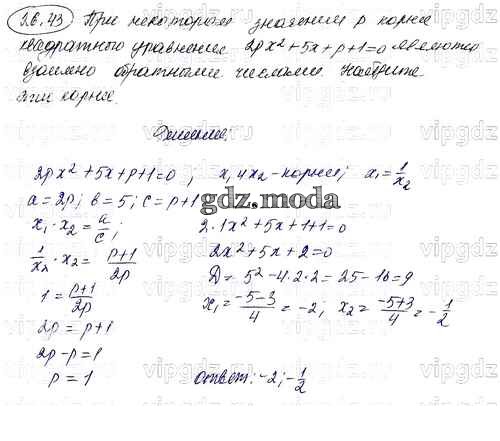 26.43 При некотором значении p корни
квадратного уравнения 2px² + 5x + p + 1 = 0 являются
взаимно обратными числами. Найдите
эти корни.
Решение.
2px² + 5x + p + 1 = 0 ; x₁ и x₂ - корни; x₁ = 1/x₂
a = 2p; b = 5; c = p + 1
gdz.moda
x₁ · x₂ = a/c ;
1/x₂ · x₂ = (p+1)/2p
1 = (p+1)/2p
2p = p + 1
2p - p = 1
p = 1
2 · 1x² + 5x + 1 + 1 = 0
2x² + 5x + 2 = 0
D = 5² - 4 · 2 · 2 = 25 - 16 = 9
x₁ = (-5-3)/4 = -2; x₂ = (-5+3)/4 = -1/2
Ответ: -2; -1/2
vipgdz